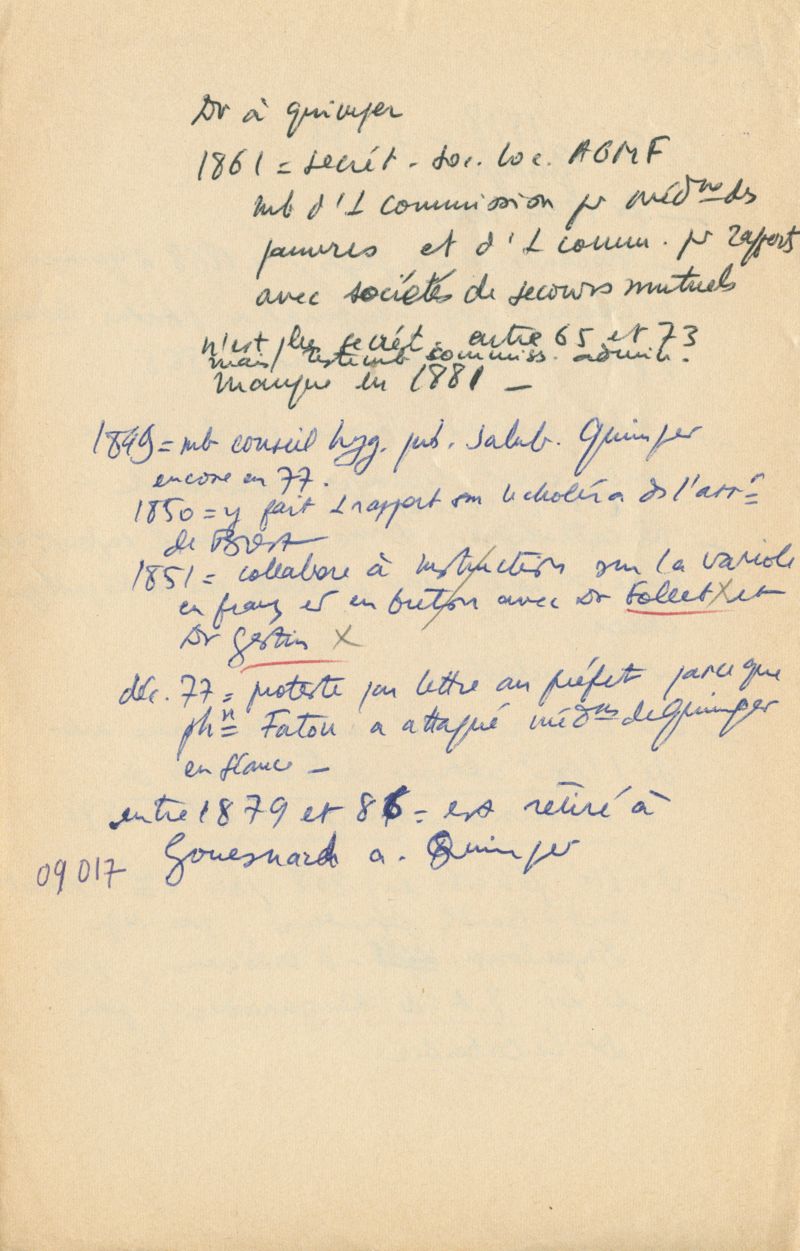 Dr à Quimper
1861 = secrét. soc. loc. AGMF
mb d'1 commission pr médne des
pauvres et d'1 comm. pr rapports
avec sociétés de secours mutuels
n'est plus secrét. entre 65 et 73
mais reste mb commiss. admin.
Manque en 1881 —
1849 = mb conseil hyg. pub. salub. Quimper
encore en 77.
1850 = y fait 1 rapport sur le choléra ds l'arrt
de Brest
1851 = collabore à instructions sur la variole
en franç et en breton avec Dr Follet X et
Dr Gestin X
déc. 77 = proteste par lettre au préfet parce que
phn Faton a attaqué médns de Quimper
en séance —
entre 1879 et 86 = est retiré à
Gouesnard a. Quimper
09 017